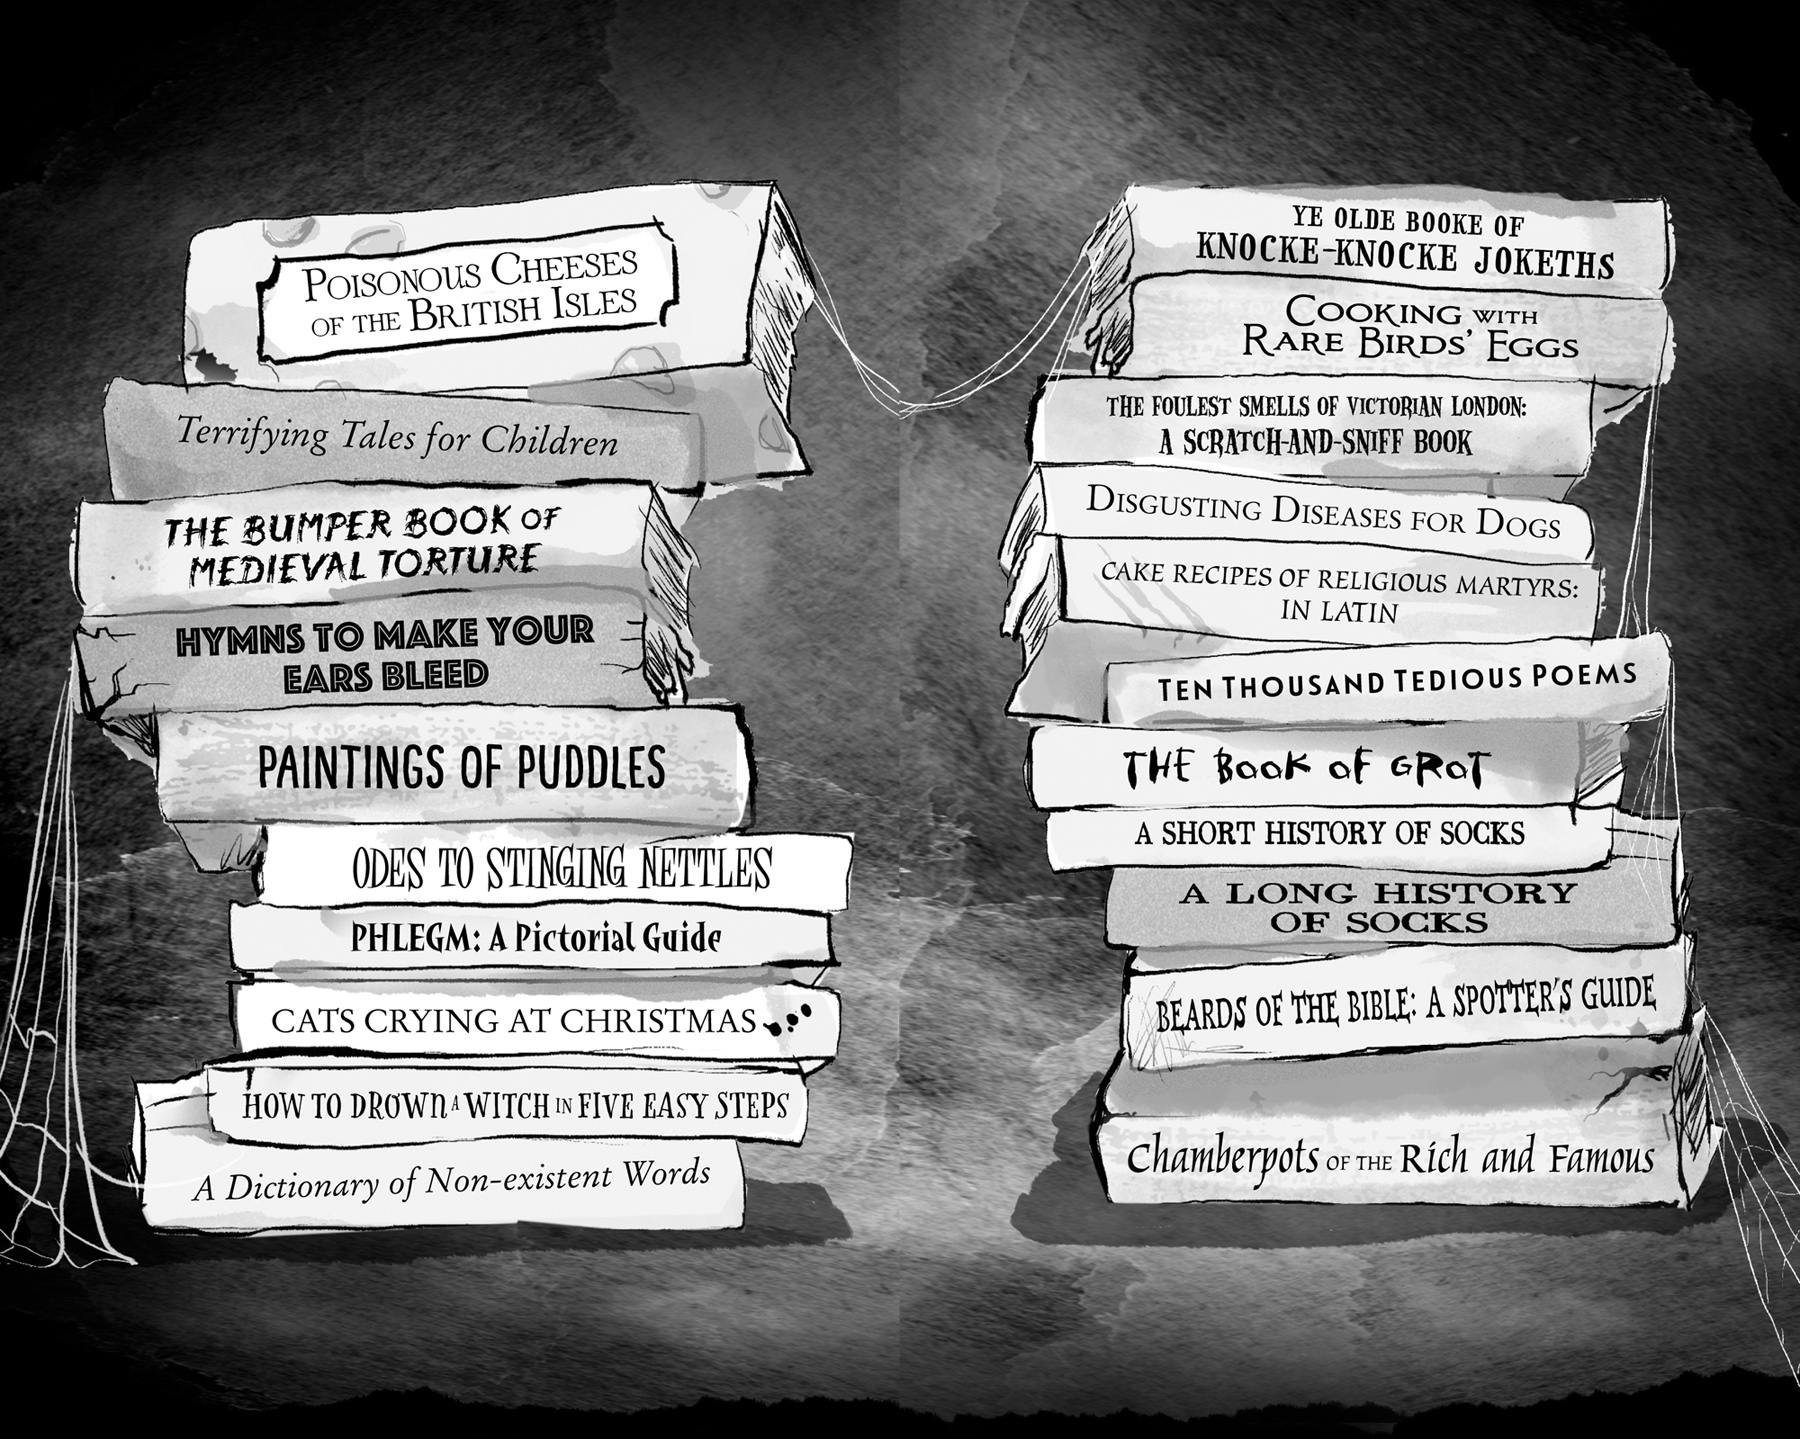 Poisonous Cheeses
of the British Isles
Terrifying Tales for Children
THE BUMPER BOOK OF
MEDIEVAL TORTURE
HYMNS TO MAKE YOUR
EARS BLEED
PAINTINGS OF PUDDLES
ODES TO STINGING NETTLES
PHLEGM: A Pictorial Guide
CATS CRYING AT CHRISTMAS...
HOW TO DROWN A WITCH IN FIVE EASY STEPS
A Dictionary of Non-existent Words
YE OLDE BOOKE OF
KNOCKE-KNOCKE JOKETHS
Cooking with
Rare Birds' Eggs
THE FOULEST SMELLS OF VICTORIAN LONDON:
A SCRATCH-AND-SNIFF BOOK
Disgusting Diseases for Dogs
CAKE RECIPES OF RELIGIOUS MARTYRS:
IN LATIN
Ten Thousand Tedious Poems
THE Book oF GRoT
A SHORT HISTORY OF SOCKS
A LONG HISTORY
OF SOCKS
BEARDS OF THE BIBLE: A SPOTTER'S GUIDE
Chamberpots OF THE Rich and Famous